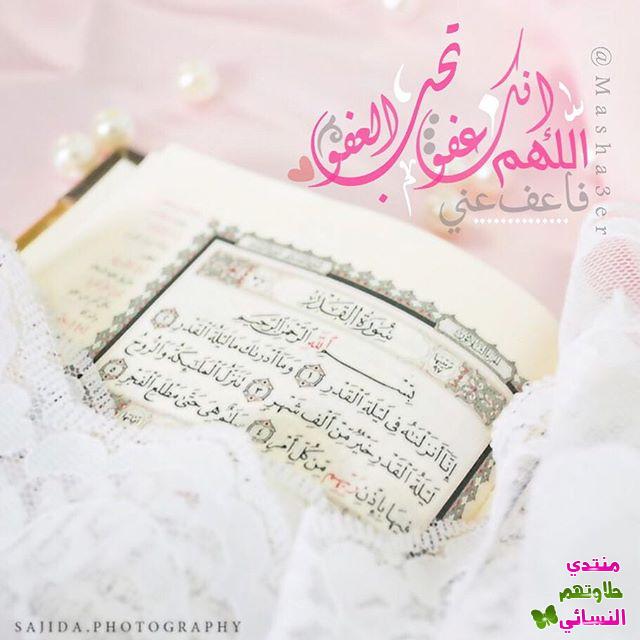 اللهم انك عفو تحب العفو
فاعف عني
@Masha3er
سورة القدر
بسم الله الرحمن الرحيم
إنا أنزلنه في ليلة القدر وما أدرىك ما ليلة القدر
ليلة القدر خير من ألف شهر تنزل الملىكة والروح
فيها بإذن ربهم من كل أمر سلم هي حتى مطلع الفجر
SAJIDA.PHOTOGRAPHY
منتدي
حلاوتهم
النسائي